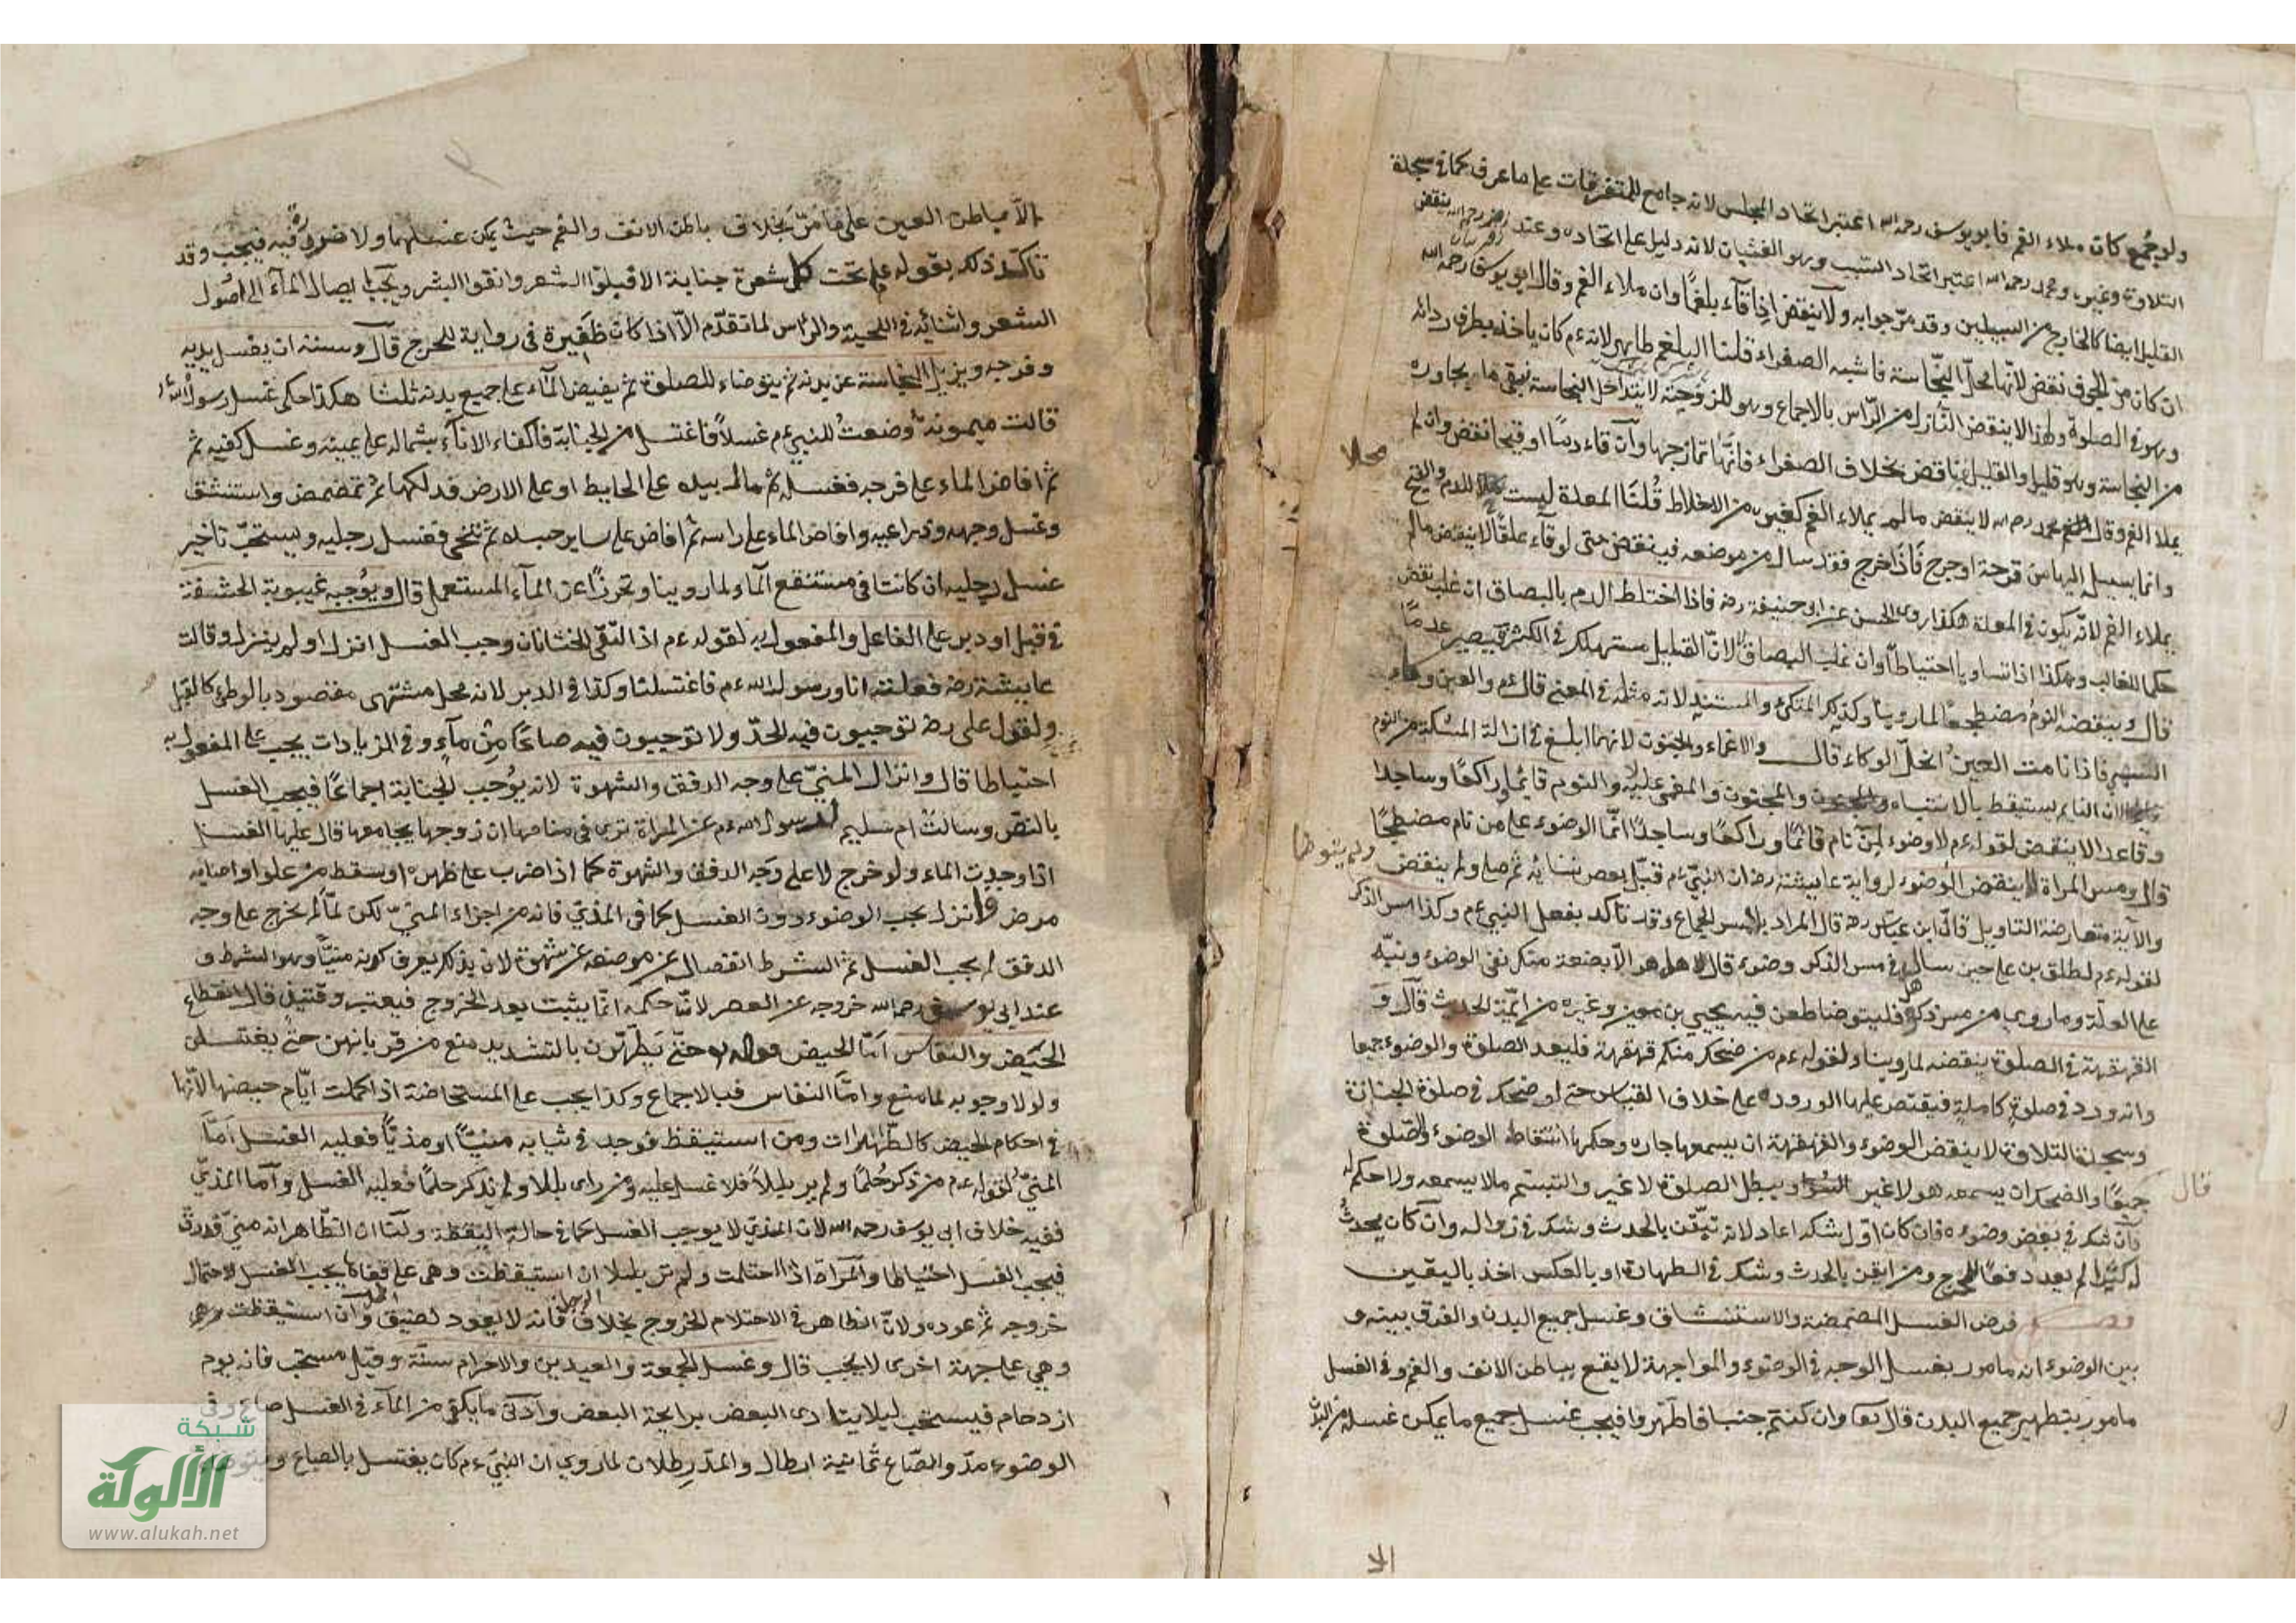 ولو جُمع كان ملاء الفم فابو يوسف رحمه الله اعتبر اتحاد المجلس لانه جامع للمتفرقات على ما عرف كما في سجدة
التلاوة وغيره ومحمد رحمه الله اعتبر اتحاد السبب وهو الغثيان لانه دليل على اتحاده وعند زفر رحمه الله ينقض
القليل ايضا كالخارج من السبيلين وقد مرّ جوابه ولا ينقض اذا قآء بلغمًا وان ملاء الفم وقال ابو يوسف رحمه الله
ان كان من الجوف نقض لانّها محلّ النجّاسة فاشبه الصفراء قلنا البلغم طاهر لانه ءم كان ياخذه بطرف ردائه
وهو في الصلوة ولهذا لا ينقض النّازل من الرّاس بالاجماع وهو للزوجته لا يتداخل النجاسة تبقى ما يجاوره
من النجاسة وهو قليل والقليل غير ناقض بخلاف الصفراء فانّها تمازجها وان قاء دمًا او قيحا نقض وان لم
يملاء الفم وقال محمد رحمه الله لا ينقض مالم يملاء الفم كغيره من الاخلاط قُلنَا المعدة ليست محلا للدم والقيح
وانما يسيل اليها من قرحة او جرح فَاذَا خرج فقد سال من موضعه فينقض حتى لو قآء علقًا لا ينقض مالم
يملاء الفم لانّه يكون في المعدة هكذا روى الحسن عن ابي حنيفة رضه فاذا اختلط الدم بالبصاق ان غلب نقض
حكما للغالب وهكذا اذا تساويا احتياطًا وان غلب البصاق لا لانّ القليل مستهلك في الكثير فيصير عدمًا
قال وينقضه النومُ مضطجعًا لما روينا وكذلك المتكئ والمستند لانه مثله في المعنى قال ءم والعين وكاء
السهِ فاذا نامت العينُ انحلّ الوكاء قال والاغماء والجنون لانهما ابلغ في ازالة المسكة من النوم
لان النايم يستيقظ بالانتباه والمجنون والمغمى عليه لا والنوم قائما وراكعًا وساجدا
وقاعدا لا ينقض لقوله ءم لا وضوء لِمَنْ نام قائمًا وراكعًا وساجدًا انّما الوضوء على من نام مضطجعًا
قال ومسّ المراة لا ينقض الوضوء لرواية عايشة رضه ان النبيّ ءم قبّل بعض نسائه ثم صلى ولم يتوضا
والآية متعارضة التاويل قال ابن عبّاس رضه قال المراد بالمس الجماع وقد تاكد بفعل النبي ءم وكذا مس الذكر
لقوله ءم لطلق بن علي حين سال هل في مس الذكر وضوء قال لا هل هو الّا بضعة منك نفى الوضوء ونبّه
على العلّة وما روي من مس ذكره فليتوضا طعن فيه يحيى بن معين وغيره من ائمّة الحديث قال و
القهقهة في الصلوة ينقضه لما روينا ولقوله ءم من ضحك منكم قهقهة فليعد الصلوة والوضوء جميعا
وانه ورد في صلوة كاملة فيقتصر عليها الوروده على خلاف القياس حتى لو ضحك في صلوة الجنازة
وسجدة التلاوة لا ينقض الوضوء والقهقهة ان يسمعها جاره وحكمها انتقاض الوضوء والصّلوة
جميعًا والضحك ان يسمعه هو لا غير ويبطل الصلوة لا غير والتبسّم ما لا يسمعه ولا حكم له
وان شك في بعض وضوءه فان كان اوّل شكه اعاد لانه تيقّن بالحدث وشك في زواله وان كان يحدثُ
له كثيرًا لم يعد دفعًا للحرج ومن ايقن بالحدث وشك في الطهارة او بالعكس اخذ باليقين
فصــل فرض الغسل المضمضة والاستنشاق وغسل جميع البدن والفرق بينه و
بين الوضوء انه مامور بغسل الوجه في الوضوء والمواجهة لا يقع بباطن الانف والفم وفي الغسل
مامور بتطهير جميع البدن قال تعا وان كنتم جنبا فاطهّروا فيجب غسل جميع ما يمكن غسله من البدن
الا
الّا بباطن العين على ما مُرّ بخلاف باطن الانف والفم حيث يمكن غسلهما ولا ضرورة فيه فيجب وقد
تاكد ذلك بقوله ءم تحت كل شعرة جنابة الا فبلّوا الشعر وانقوا البشر ويجب ايصال المآء الى اصُول
الشعر واثنائه في اللحية والراس لما تقدّم الّا اذا كان ظفيرة في رواية للحرج قال وسنته ان يغسل يديه
وفرجه ويزيل النجاسة عن بدنه ثم يتوضاء للصلوة ثم يفيض المآء على جميع بدنه ثلثا هكذا حكى غسل رسول الله
قالت ميمونة وضعتُ للنبي ءم غسلاً فاغتسل من الجنابة فاكفاء الاناء بشماله على يمينه وغسل كفيه ثم
ثم افاض الماء على فرجه فغسله ثم مال بيده على الحايط او على الارض فدلكها ثم تمضمض واستنشق
وغسل وجهه وذراعيه وافاض الماء على راسه ثم افاض على ساير جسده ثم تنحى فغسل رجليه ويستحبّ تاخير
غسل رجليه ان كانتا في مستنقع المآء لما روينا وتحرزًا عن المآء المستعمل قال ويُوجبه غيبوبة الحشفة
في قبل او دبر على الفاعل والمفعول به لقوله ءم اذا التقى الختانان وجب الغسل انزل او لم ينزل وقالت
عايشة رضه فعلته انا ورسول الله ءم فاغتسلنا وكذا في الدبر لانه محل مشتهى مقصود بالوطئ كالقبل
ولقول على رضه توجبون فيه الحدّ ولا توجبون فيه صاعًا مِنْ مآءٍ وفي الزيادات يجب على المفعول به
احتياطا قال وانزال المنيّ على وجه الدفق والشهوة لانه يُوجب الجنابة اجماعًا فيجب الغسل
بالنصّ وسالتْ ام سليم رسول الله ءم عن المراة ترى في منامها ان زوجها يجامعها قال عليها الغسل
اذا وجدت الماء ولو خرج لا على وجه الدفق والشهوة كما اذا ضرب على ظهره او سقط من علو او اصابه
مرض وانزل يجب الوضوء دون الغسل كما في المذي فانه من اجزاء المنيّ لكن لمّا لم يخرج على وجه
الدفق لم يجب الغسل ثم الشرط انفصاله عن موضعه عن شهوة لان بذلك يعرف كونه منيًّا وهو الشرط و
عند ابي يوسف رحمه الله خروجه عن العصر لانّ حكمه انّما يثبت بعد الخروج فيعتبر وقتئذٍ قال انقطاع
الحيَض والنفاس امّا الحيض فقوله تع حتّى يَطّهّرن بالتشديد منع من قربانهن حتى يغتسلن
ولولا وجوبه لما منع وامّا النفاس فبالاجماع وكذا يجب على المستحاضة اذا كملت ايّام حيضها لانّها
في احكام الحيض كالطّاهرات ومن استيقظ فوجد في ثيابه منيًّا او مذيًّا فعليه الغسل امّا
المنيّ لقوله ءم من ذكر حُلمًا ولم ير بللاً فلا غسل عليه ومن راى بللا ولم يذكر حلمًا فعليه الغسل وامّا المذيّ
ففيه خلاف ابي يوسف رحمه الله لان المذي لا يوجب الغسل كما في حالة اليقظة ولنا ان الظّاهر انه منيّ قد رقّ
فيجب الغسل احتياطا والمراة اذا احتلمت ولم تر بللا ان استيقظت وهي على قفاها يجب الغسل لاحتمال
خروجه ثم عوده ولانّ الظاهر في الاحتلام الخروج بخلاف الرجل فانه لا يعود لضيق المحل وان استيقظت
وهي على جهة اخرى لا يجب قال وغسل الجمعة والعيدين والاحرام سنّة وقيل مستحب فانه يوم
ازدحام فيستحب ليلا يتاذى البعض برايحة البعض وادنى ما يكفي من المآء في الغسل صاع وفي
الوضوء مدّ والصّاع ثمانية ارطال والمدّ رطلان لما روي ان النبيّ ءم كان يغتسل بالصاع ويتوضاء
شبكة
الألوكة
www.alukah.net